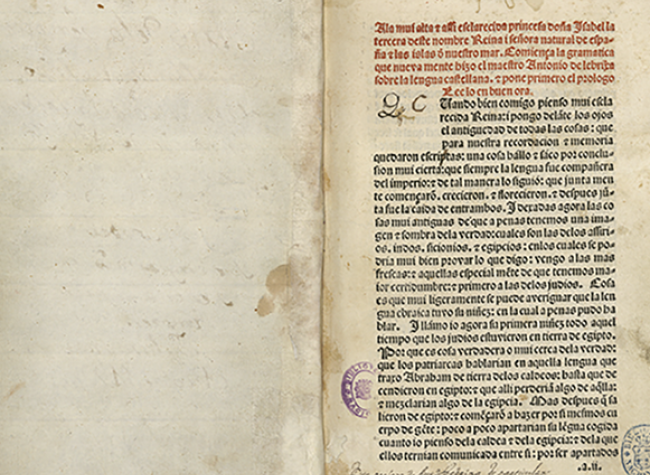 Ala mui alta ⁊ assi esclarecida princesa doña Isabel la
tercera deste nombre Reina i señora natural de espa-
ña ⁊ las islas d̃ nuestro mar. Comiença la gramatica
que nueva mente hizo el maestro Antonio de lebrixa
sobre la lengua castellana. ⁊ pone primero el prologo
Lee lo en buen ora.
C Uando bien comigo pienso mui escla
recida Reina: i pongo delãte los ojos
el antiguedad de todas las cosas: que
para nuestra recordacion ⁊ memoria
quedaron escriptas: una cosa hállo ⁊ sáco por conclu-
sion mui cierta: que siempre la lengua fue compañera
del imperio: ⁊ de tal manera lo siguió: que junta men
te començarõ. crecieron. ⁊ florecieron. ⁊ despues jũ-
ta fue la caida de entrambos. I dexadas agora las co
sas mui antiguas de que a penas tenemos una ima-
gen ⁊ sombra dela verdad: cuales son las delos assiri-
os. indos. sicionios. ⁊ egipcios: enlos cuales se po-
dria mui bien provar lo que digo: vengo a las mas
frescas: ⁊ aquellas especial mẽte de que tenemos ma-
ior certidumbre: ⁊ primero a las delos judios. Cosa
es que mui ligeramente se puede averiguar que la len
gua ebraica tuvo su niñez: en la cual a penas pudo ha
blar. I llámo io agora su primera niñez todo aquel
tiempo que los judios estuvieron en tierra de egipto.
Por que es cosa verdadera o mui cerca dela verdad:
que los patriarcas hablarian en aquella lengua que
traxo Abraham de tierra delos caldeos: hasta que de
cendieron en egipto: ⁊ que alli perderiã algo de aq̃lla:
⁊ mezclarian algo de la egipcia. Mas despues q̃ sa
lieron de egipto: ⁊ començarõ a hazer por si mesmos cu
erpo de gẽte: poco a poco apartarian su lẽgua cogida
cuanto io pienso dela caldea ⁊ dela egipcia: ⁊ dela que
ellos ternian comunicada entre si: por ser apartados
.a.ii.